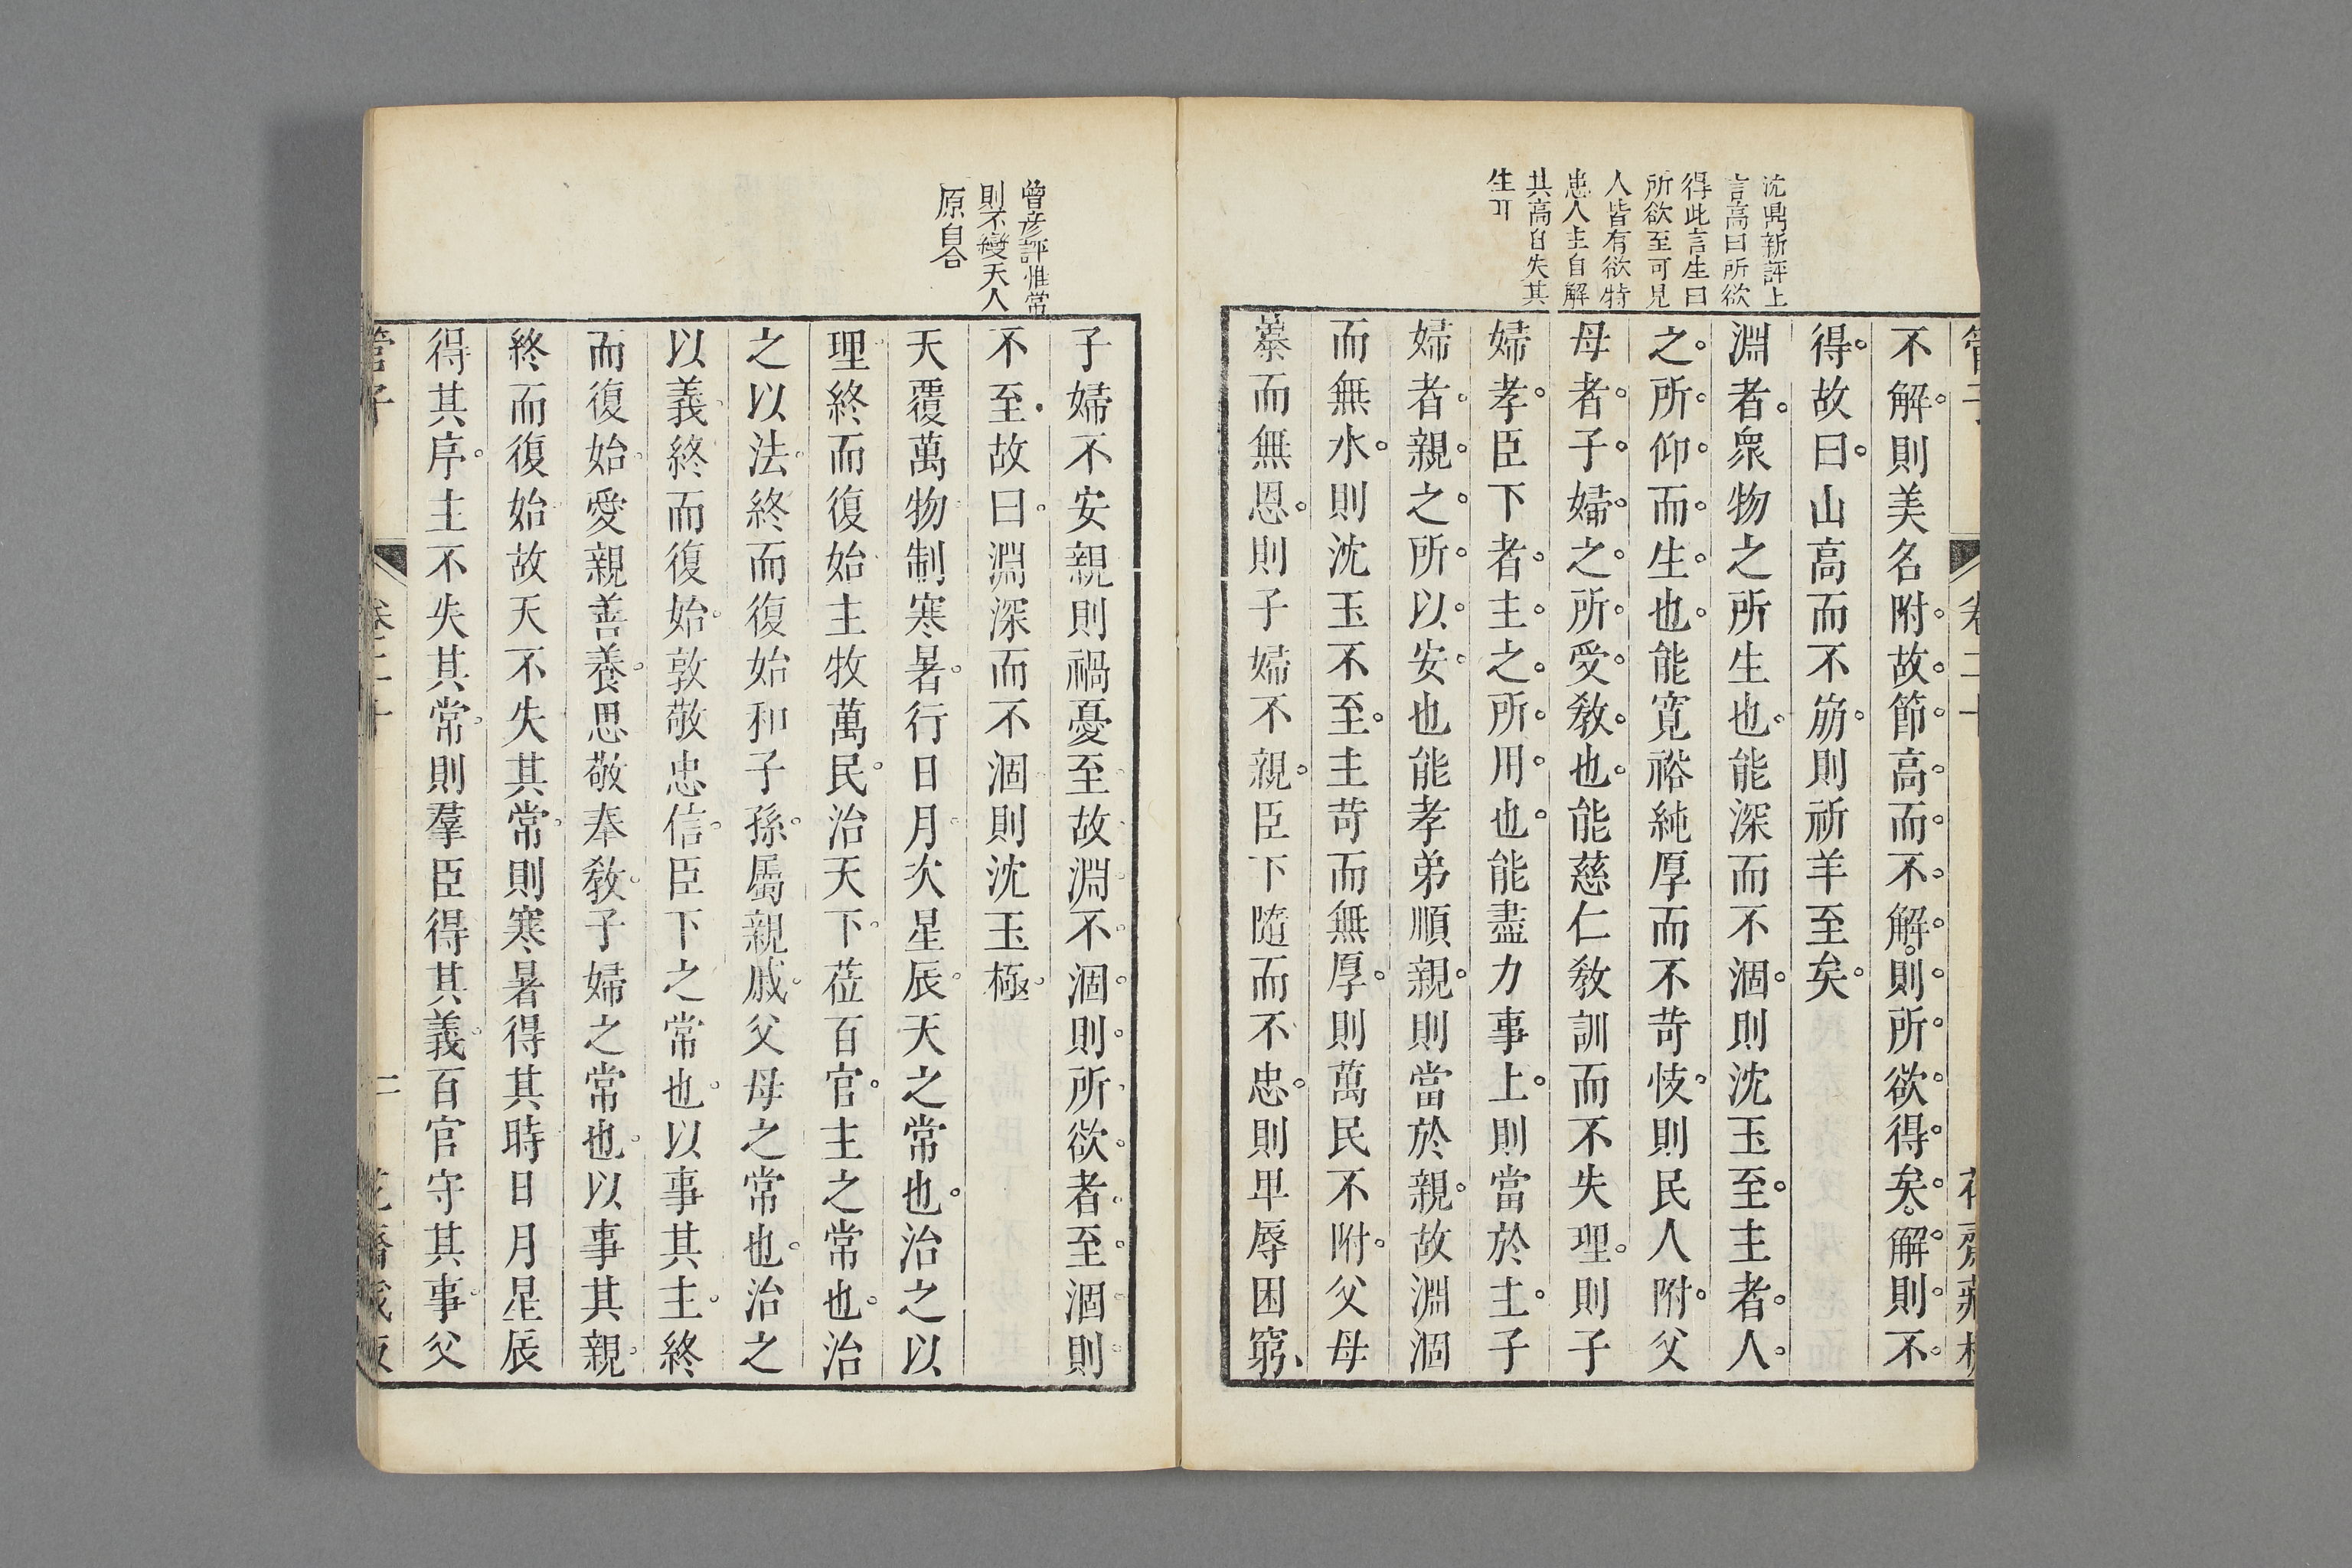 沈鼎新評上
言高曰所欲
得此言生曰
所欲至可見
人皆有欲特
患人主自解
其高自失其
生耳
不解則美名附故節高而不解則所欲得矣解則不
得故曰山高而不崩則祈羊至矣
淵者衆物之所生也能深而不涸則沈玉至主者人
之所仰而生也能寬裕純厚而不苛忮則民人附父
母者子婦之所受教也能慈仁教訓而不失理則子
婦孝臣下者主之所用也能盡力事上則當於主子
婦者親之所以安也能孝弟順親則當於親故淵涸
而無水則沈玉不至主苛而無厚則萬民不附父母
暴而無恩則子婦不親臣下隨而不忠則卑辱困窮
曾彥評惟常
則不變天人
原自合
子婦不安親則禍憂至故淵不涸則所欲者至涸則
不至故曰淵深而不涸則沈玉極
天覆萬物制寒暑行日月次星辰天之常也治之以
理終而復始主牧萬民治天下莅百官主之常也治
之以法終而復始和子孫屬親戚父母之常也治之
以義終而復始敦敬忠信臣下之常也以事其主終
而復始愛親善養思敬奉教子婦之常也以事其親
終而復始故天不失其常則寒暑得其時日月星辰
得其序主不失其常則羣臣得其義百官守其事父
管子 卷二十 二 花齋藏板